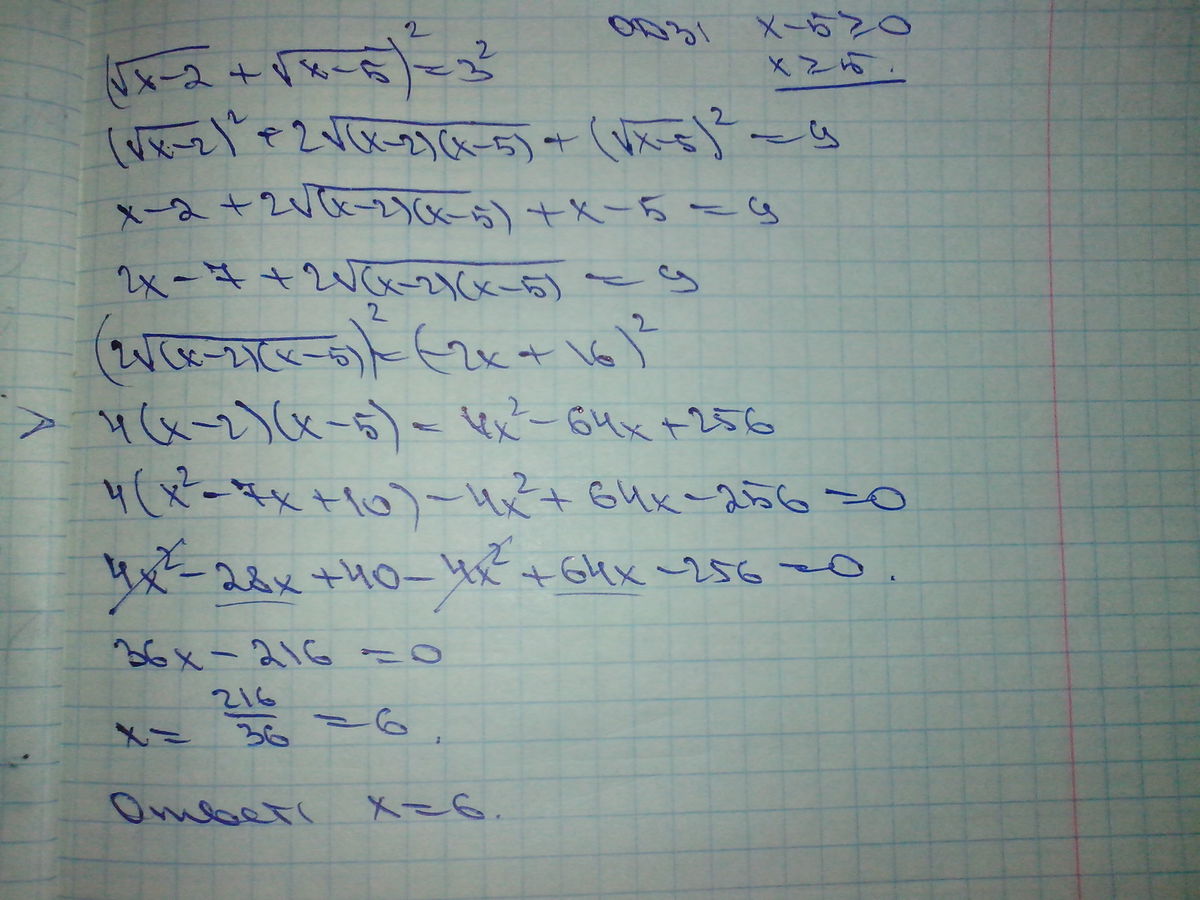 (√x-2 + √x-5)² = 3² ОДЗ: x-5≥0
x≥5.
(√x-2)² + 2√(x-2)(x-5) + (√x-5)² = 9
x-2 + 2√(x-2)(x-5) + x-5 = 9
2x-7 + 2√(x-2)(x-5) = 9
(2√(x-2)(x-5))² = (-2x+16)²
> 4(x-2)(x-5) = 4x²-64x+256
4(x²-7x+10) - 4x² + 64x - 256 = 0
4x² - 28x + 40 - 4x² + 64x - 256 = 0.
36x - 216 = 0
x = 216/36 = 6.
Ответ: x = 6.